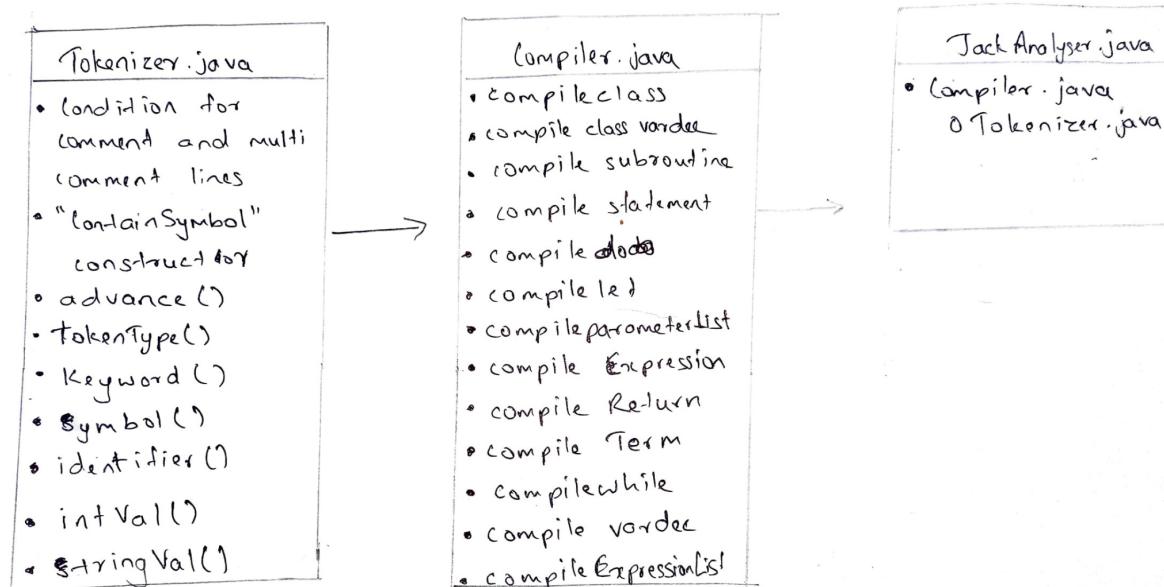 Tokenizer.java
• Condition for
comment and multi
comment lines
• "ContainSymbol"
constructor
• advance()
• tokenType()
• Keyword()
• symbol()
• identifier()
• intVal()
• stringVal()
Compiler.java
• compileclass
• compile class vardec
• compile subroutine
• compile statement
• compile do
• compile let
• compileparameterList
• compile Expression
• compile Return
• compile Term
• compilewhile
• compile vardec
• compileExpressionList
JackAnalyser.java
• Compiler.java
o Tokenizer.java